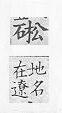 硹
地名
在遼